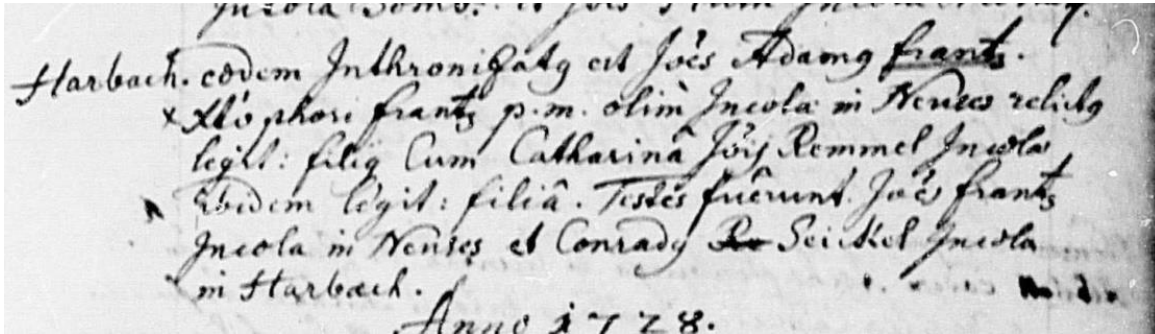 Incola Somb: et Joes
Harbach. eodem Inthronizatg est Joes Adamg frantz.
Xtophori frantz p.m. olim Incola in Neuses relictg
legit: filig Cum Catharinâ Jois Remmel Incola
ibidem legit: filiâ. Testes fuerunt Joes frantz
Incola in Neuses et Conradg Seickel Incola
in Harbach.
Anno 1728.